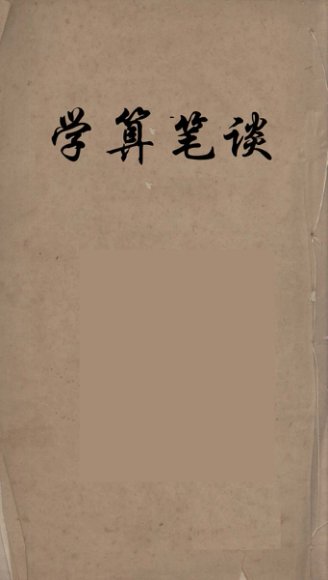 学算笔谈